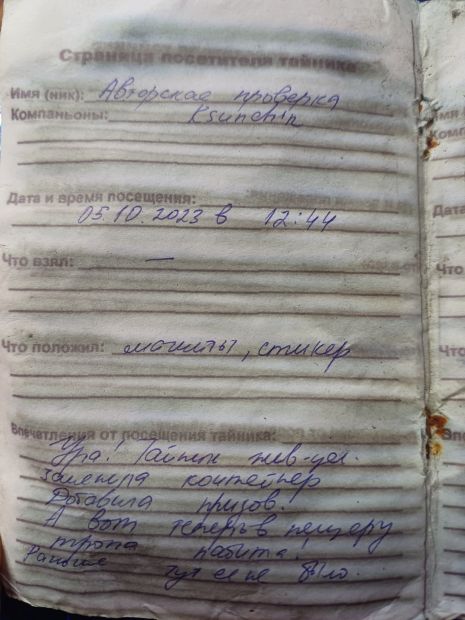 Страница посетителя тайника
Имя (ник): Авторская проверка
Компаньоны: Ksunchik
Дата и время посещения:
05.10.2023 в 12:44
Что взял: —
Что положил: магниты, стикер
Впечатления от посещения тайника:
Ура! Тайник жив-цел.
Заменила контейнер
Добавила призов.
А вот теперь в пещеру
тропа набита!
Раньше тут её не было.